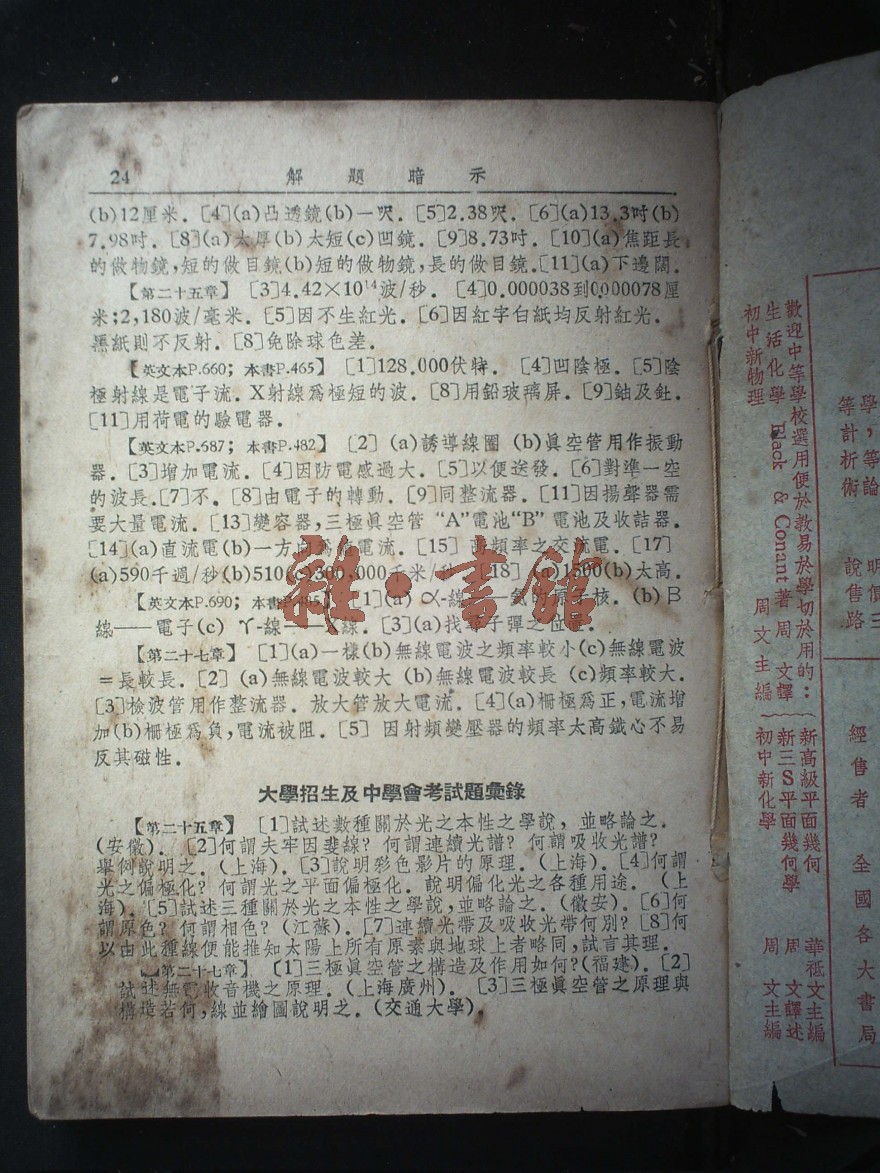 24 解題暗示
(b)12厘米．[4](a)凸透鏡(b)一呎．[5]2.38呎．[6](a)13.3吋(b)
7.98吋．[8](a)太厚(b)太短(c)凹鏡．[9]8.73吋．[10](a)焦距長
的做物鏡,短的做目鏡(b)短的做物鏡,長的做目鏡.[11](a)下邊闊．
【第二十五章】 [3]4.42×10¹⁴波/秒． [4]0.000038到0.000078厘
米;2,180波/毫米．[5]因不生紅光．[6]因紅字白紙均反射紅光．
黑紙則不反射．[8]免除球色差．
【英文本P.660; 本書P.465】 [1]128.000伏特． [4]凹陰極．[5]陰
極射線是電子流．X射線爲極短的波．[8]用鉛玻璃屏．[9]鈾及釷．
[11]用荷電的驗電器．
【英文本P.687; 本書P.482】 [2] (a)誘導線圈 (b)眞空管用作振動
器．[3]增加電流．[4]因防電感過大．[5]以便送發．[6]對準一空
的波長.[7]不．[8]由電子的轉動．[9]同整流器．[11]因揚聲器需
要大量電流．[13]變容器,三極眞空管 “A”電池“B” 電池及收話器．
[14](a)直流電(b)一方向爲電流．[15] 高頻率之交流電．[17]
(a)590千週/秒(b)510(c)300.000千米/秒．[18] (a)1500(b)太高．
【英文本P.690; 本書P.485】 [1](a) α-線——氦的原子核．(b) B
線——電子(c) γ-線——X線．[3](a)找電子彈之位置．
【第二十七章】 [1](a)一樣(b)無線電波之頻率較小(c)無線電波
=長較長．[2] (a)無線電波較大 (b)無線電波較長 (c)頻率較大．
[3]檢波管用作整流器． 放大管放大電流．[4](a)柵極爲正,電流增
加(b)柵極爲負,電流被阻．[5] 因射頻變壓器的頻率太高鐵心不易
反其磁性．
大學招生及中學會考試題彙錄
【第二十五章】 [1]試述數種關於光之本性之學說, 並略論之．
(安徽)． [2]何謂夫牢因斐線? 何謂連續光譜? 何謂吸收光譜?
舉例說明之．(上海)．[3]說明彩色影片的原理．(上海)．[4]何謂
光之偏極化? 何謂光之平面偏極化．說明偏化光之各種用途． (上
海)．[5]試述三種關於光之本性之學說,並略論之．(徽安)．[6]何
謂原色? 何謂相色? (江蘇)．[7]連續光帶及吸收光帶何別? [8]何
以由此種線便能推知太陽上所有原素與地球上者略同,試言其理．
【第二十七章】 [1]三極眞空管之構造及作用如何?(福建)．[2]
試述無電收音機之原理．(上海廣州)． [3]三極眞空管之原理與
構造若何,線並繪圖說明之．(交通大學)．
雜·書館
學,等論
等計析術
明價三
說售路
經售者 全國各大書局
歡迎中等學校選用便於教易於學切於用的:
生活化學 Black & Conant著 周文譯
初中新物理 周文主編
新高級平面幾何 華祗文主編
新三S平面幾何學 周文譯述
初中新化學 周文主編